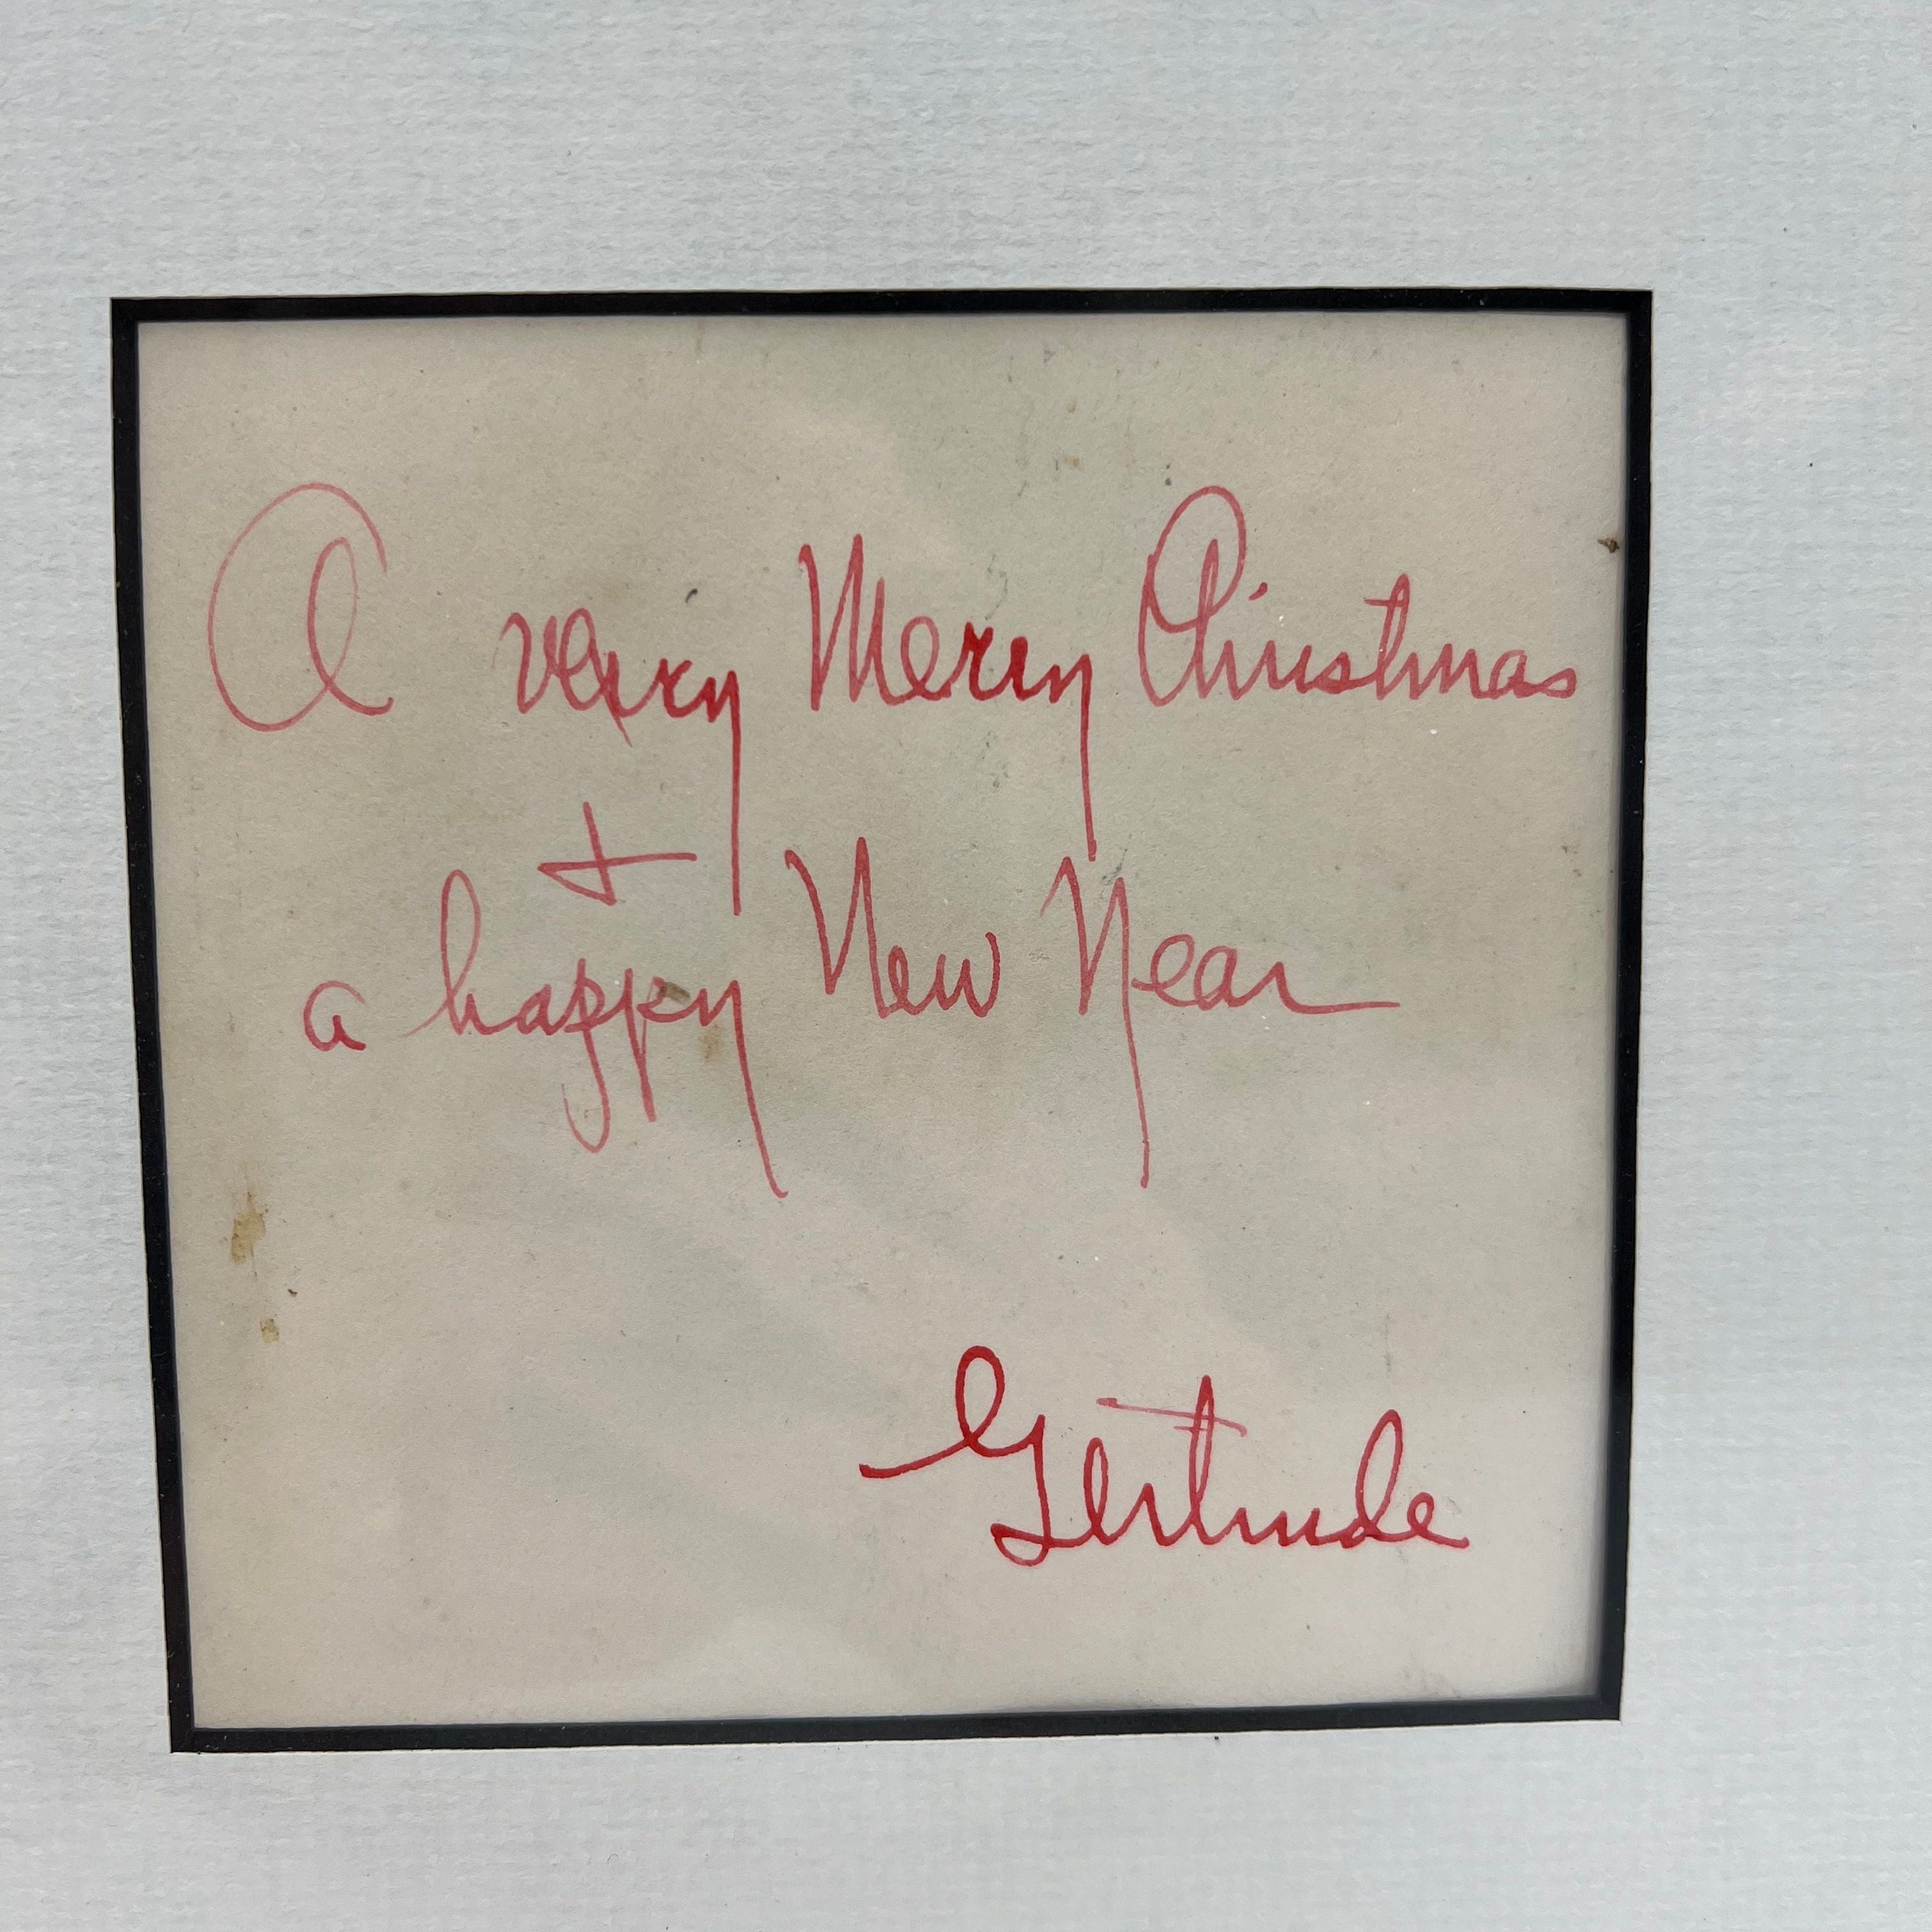 A very Merry Christmas
+
a happy New Year
Gertrude